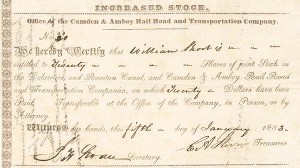 INCREASED STOCK.
Office of the Camden & Amboy Rail Road and Transportation Company.
No.
We hereby Certify that William Short is
entitled to Twenty Shares of joint Stock in the
Delaware, and Raritan Canal, and Camden & Amboy Rail Road
and Transportation Companies, on which Twenty Dollars have been
Paid, Transferable at the Office of the Company, in Person, or by
Attorney.
Witness hands, this fifth day of January
Secretary. Treasurer